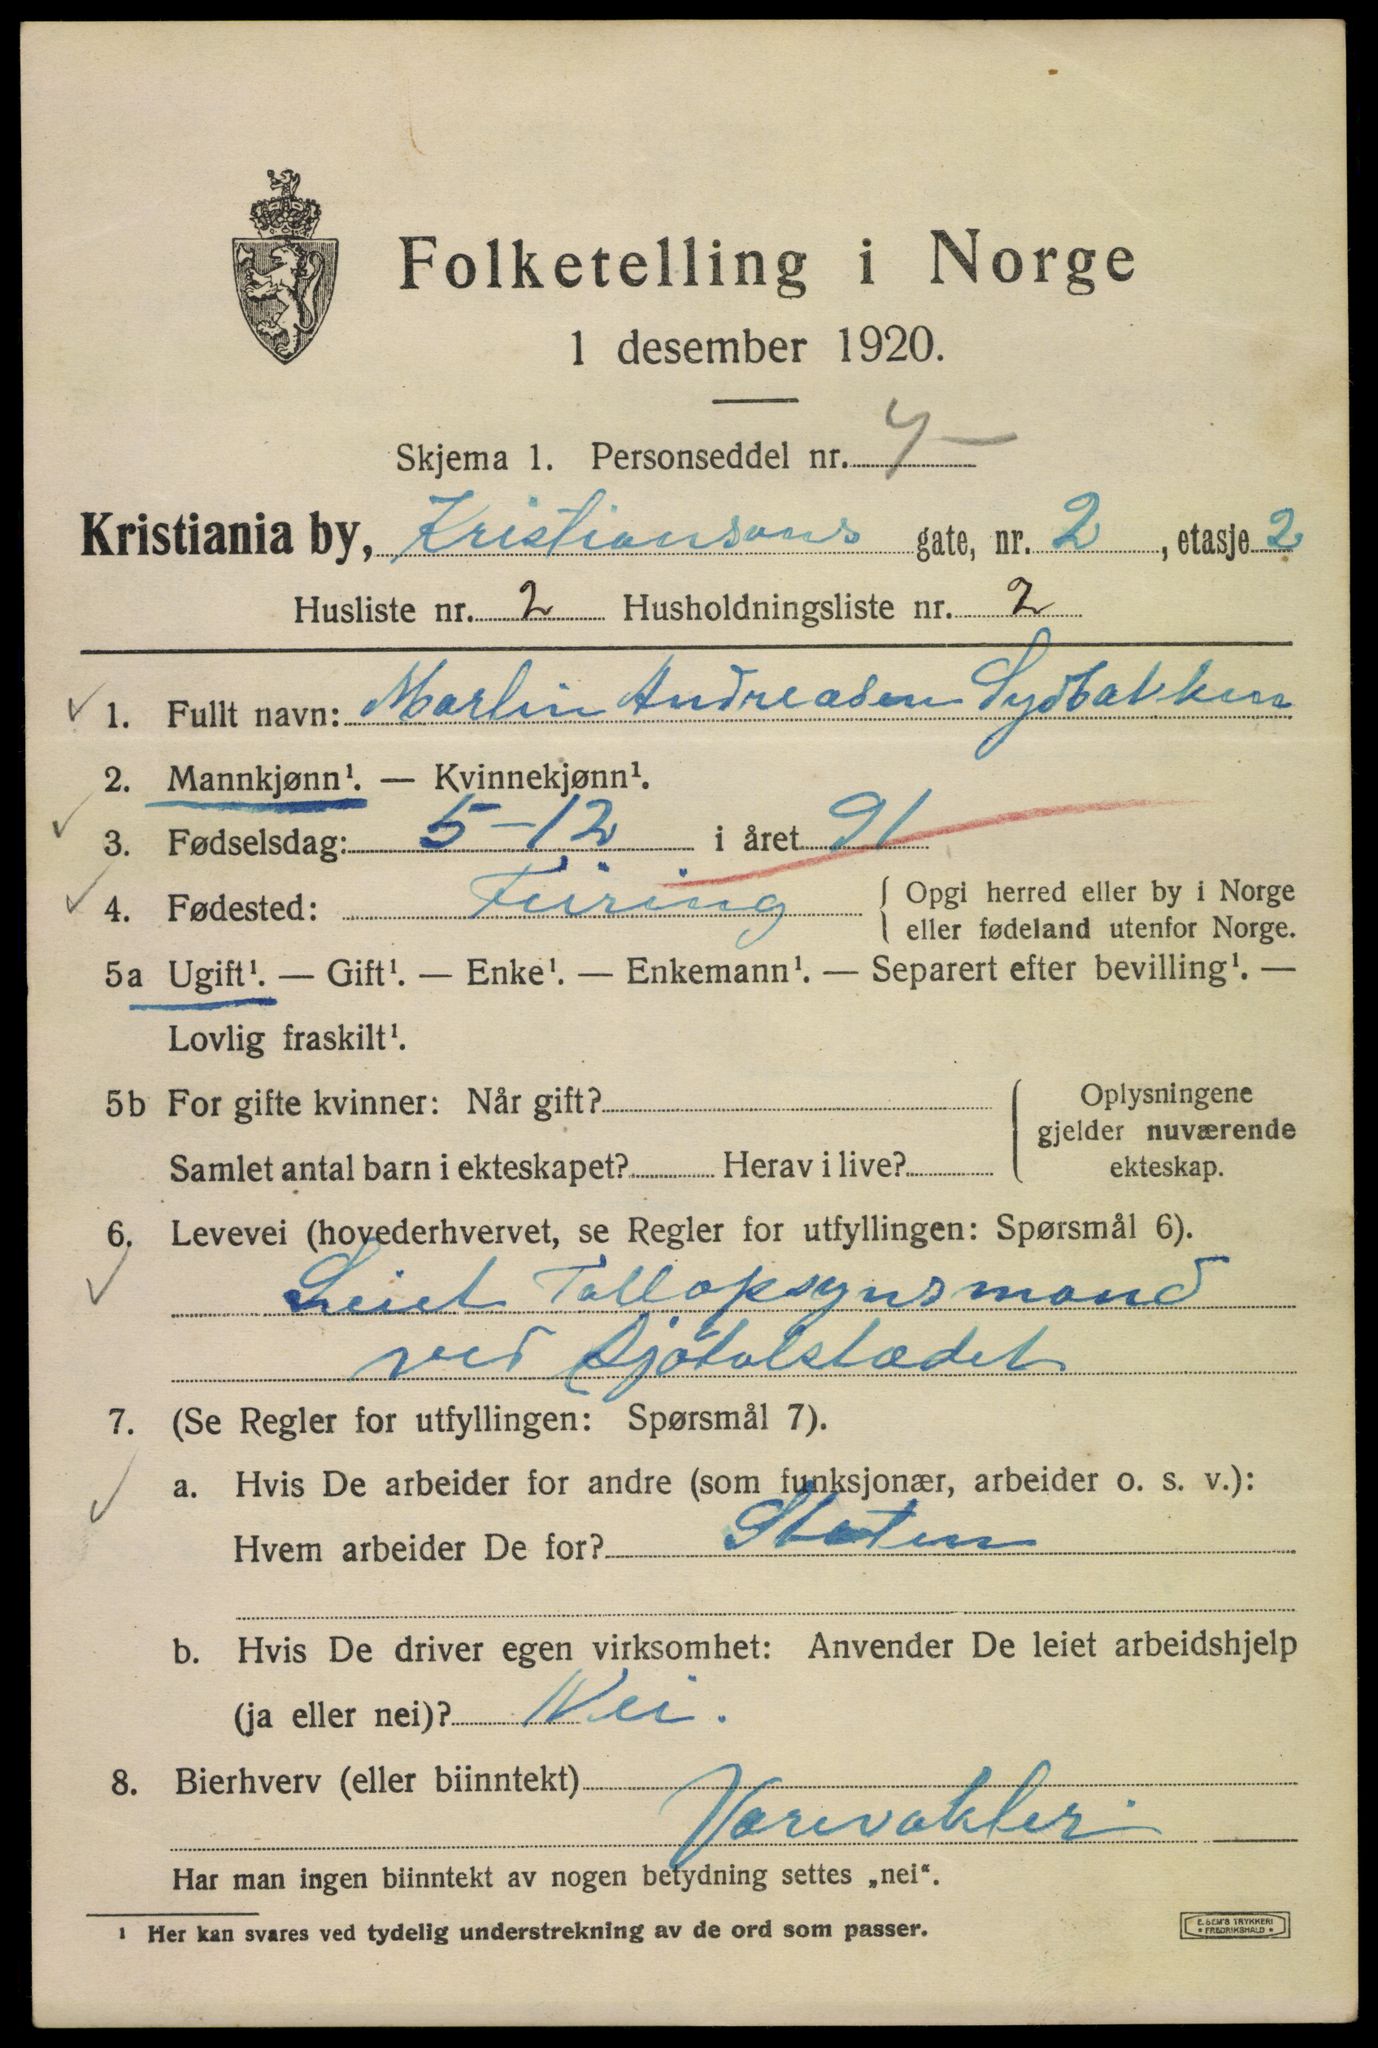 Folketelling i Norge
1 desember 1920.
Skjema 1. Personseddel nr. 4
Kristiania by, Kristiansons gate, nr. 2, etasje 2
Husliste nr. 2 Husholdningsliste nr. 2
1. Fullt navn: Martin Andreasen Sydbakken
2. Mannkjønn¹. — Kvinnekjønn¹.
3. Fødselsdag: 5-12 i året 91
4. Fødested: Feiring { Opgi herred eller by i Norge
eller fødeland utenfor Norge.
5a Ugift¹. — Gift¹. — Enke¹. — Enkemann¹. — Separert efter bevilling¹. —
Lovlig fraskilt¹.
5b For gifte kvinner: Når gift? { Oplysningene
gjelder nuværende
Samlet antal barn i ekteskapet? Herav i live? ekteskap.
6. Levevei (hovederhvervet, se Regler for utfyllingen: Spørsmål 6).
Leiet Tollopsynsmand
ved Sjøtolstædet
7. (Se Regler for utfyllingen: Spørsmål 7).
a. Hvis De arbeider for andre (som funksjonær, arbeider o. s. v.):
Hvem arbeider De for? Staten
b. Hvis De driver egen virksomhet: Anvender De leiet arbeidshjelp
(ja eller nei)? Nei.
8. Bierhverv (eller biinntekt)
Varevakter
Har man ingen biinntekt av nogen betydning settes „nei“.
¹ Her kan svares ved tydelig understrekning av de ord som passer.
E. SEM'S TRYKKERI
* FREDRIKSHALD *